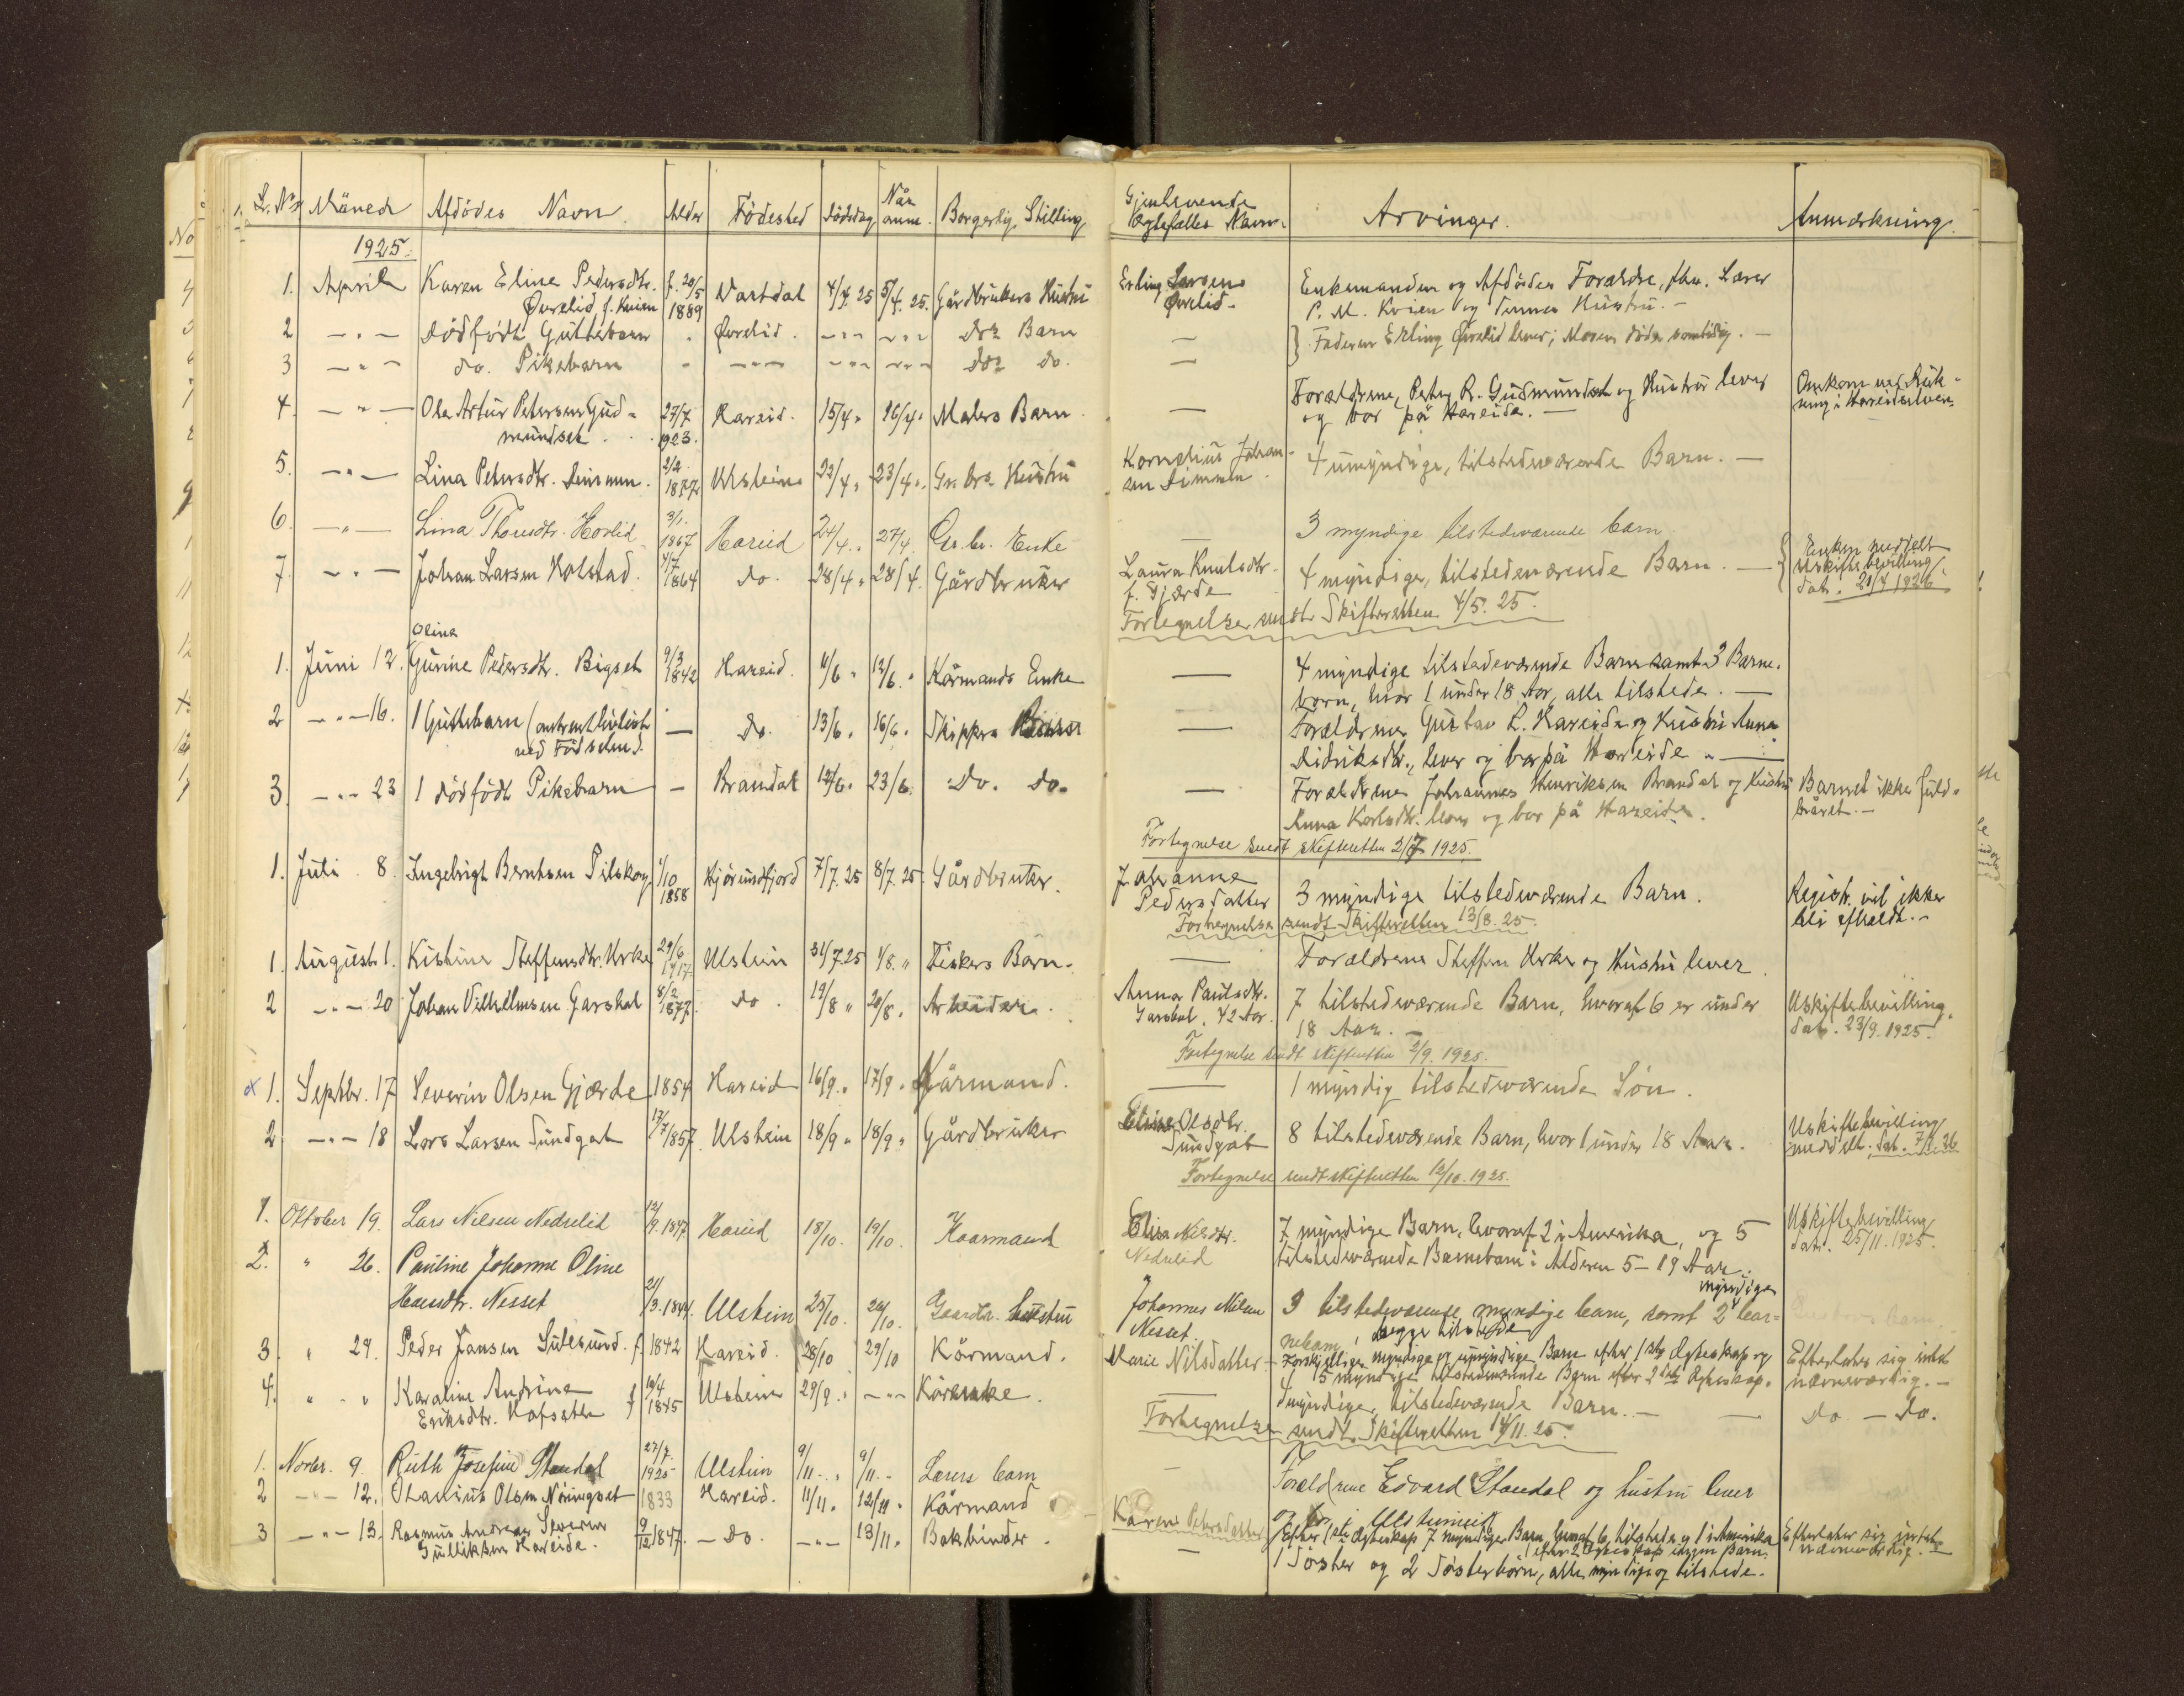 L. No Måned Afdødes Navn. Alder Fødested Dødsdag Når anm. Borgerlig Stilling Gjenlevende Ægtefælles Navn. Arvinger. Anmærkning.
1925.
1. April Karen Eline Pedersdtr. f. 20/5 Vartdal 4/4 25 5/4. 25. Gårdbrukers Hustru Erling Larsens Enkemanden og Afdødes Forældre, fhv. Lærer
Øvrelid, f. Kvien 1889 Øvrelid - P. M. Kvien og dennes Hustru. -
2 - " - Dødfødt Guttebarn " Øvrelid. - " - - " - Barn — } Faderen Erling Øvrelid lever; Moren døde samtidig. -
3 - " - do. Pikebarn - - " - - " - - " - do. —
4. - " - Ole Artur Petersen Gud- 27/7 Hareid. 15/4 " 16/4 " Malers Barn — Forældrene, Peter R. Gudmundset og Hustru lever Omkom ved
mundset 1923. og bor på Hareide. —
5. - " - Lina Petersdtr. 2/2 1877 Ulstein 22/4 " 23/4 " Gr. brs. Hustru Kornelius Johan- 4 umyndige, tilstedeværende Barn. —
sen
6. - " - Lina Thomsdtr. Hovlid 3/1. 1867 Hareid 24/4. " 27/4 Gr. br. Enke — 3 myndige tilstedeværende barn
7. - " - Johan Larsen Holstad. 4/7 1864 do. 28/4 " 28/4. Gårdbruker Laura Knutsdtr. 4 myndige, tilstedeværende Barn. — { Enken meddelt
f. Gjærde Uskiftebevilling
dat. 20/4 1926
Fortegnelse sendt Skifteretten 4/5. 25.
Oline
1. Juni 12. Gurine Pedersdtr. Bigset 9/3 1842 Hareid. 11/6 " 12/6. " Kårmands Enke — 4 myndige tilstedeværende Barn samt 3 Barne-
born, hvor 1 under 18 Aar, alle tilstede. —
2 - " - 16. 1 Guttebarn ( livløst — Do. 13/6 " 16/6 " Skippers — Forældrene Gustav L. Hareide og Hustru Anna
ved Fødselen). Didriksdtr., lever og bor på Hareide. —
3. - " - 23 1 dødfødt Pikebarn — Brandal 12/6 " 23/6. Do. Do. — Forældrene Johannes Henriksen Brandal og Hustru Barnet ikke fuld-
Anna Karlsdtr. lever og bor på Hareide. båret. —
Fortegnelse sendt skifteretten 2/7 1925.
1. Juli 8. Ingebrigt Berntsen Pilskog 1/10 1858 Hjørundfjord 7/7. 25 8/7. 25. Gårdbruker. Johanne
Pedersdatter 3 myndige tilstedeværende Barn. Registr. vil ikke
bli afholdt. -
Fortegnelse sendt Skifteretten 13/8. 25.
1. August 1. Kristine Steffensdtr. Urke 29/6 1917 Ulstein 31/7 25 1/8. " Fiskers Barn. — Forældrene Steffen Urke og Hustru lever.
2 - " - 20 Johan Vilhelmsen Garshol 8/2 1877. do. 19/8 " 20/8. " Arbeider. Anna Paulsdtr. 7 tilstedeværende Barn, hvoraf 6 er under Uskiftebevilling,
Garshol, 42 Aar. 18 Aar. — dat. 23/9. 1925.
Fortegnelse sendt skifteretten 2/9. 1925.
x 1. Septbr. 17 Severin Olsen Gjærde 1854 Hareid 16/9. " 17/9 " Kårmand. — 1 myndig tilstedeværende Søn.
2 - " - 18 Lars Larsen Sundgot 17/7 1857. Ulstein 18/9 " 18/9 " Gårdbruker Olsdtr.
Sundgot 8 tilstedeværende Barn, hvor 1 under 18 Aar. Uskiftebevilling
meddelt; dat. 7/1. 26
Fortegnelse sendt skifteretten 12/10. 1925.
1. Oktober 19. Lars Nilsen Nedrelid 12/9. 1847 Hareid 18/10. 19/10. Kaarmand Elisa Nilsdtr. 7 myndige Barn, hvoraf 2 i Amerika, og 5 Uskiftebevilling
Nedrelid tilstedeværende Barnebarn i Alderen 5-19 Aar. dat. 25/11. 1925.
2. " 26. Pauline Johanne Oline
Hansdtr. Nesset 21/3. 1844. Ulstein 25/10. 26/10. Gaardbr. hustru Johannes Nilsen 3 tilstedeværende myndige barn, samt 2 myndige bar-
Nesset. nebarn, begge tilstede
3. " 29. Peder Jansen Sulesund. f. 1842 Hareid. 28/10 29/10 Kårmand. Marie Nilsdatter - Forskjellige myndige og umyndige Barn efter 1ste Ægteskap og Efterlater sig intet
5 myndige tilstedeværende Barn efter 2det Ægteskap. nævneværdig. -
4. " - " Karoline Andrine f 10/4 1845 Ulstein 29/9. " - " - Kårenke. — myndige, tilstedeværende Barn. — — Do. — Do.
Eriksdtr. Hofseth
Fortegnelse sendt Skifteretten 14/11. 25.
1. Novbr. 9. Ruth Josefine Standal 27/7. 1925 Ulstein 9/11. " 9/11. - Lærers barn — Forældrene Edvard Standal og hustru lever
og bor i Ulsteinvik
2 - " - 12. Olanius Olsen Nøringset 1833 Hareid. 11/11. 12/11 " Kårmand Karen Petersdatter Efter 1ste Ægteskap 7 myndige Barn, hvoraf 6 tilstede og 1 i Amerika Efterlater sig intet
efter 2 Ægteskap ingen Barn. nævneværdig. —
3 - " - 13. Rasmus Andreas Severin 9/12 1847. - Do. - " - 13/11. Bokbinder. — 1 Søster og 2 Søsterbørn, alle myndige og tilstede.
Gulliksen Hareide.